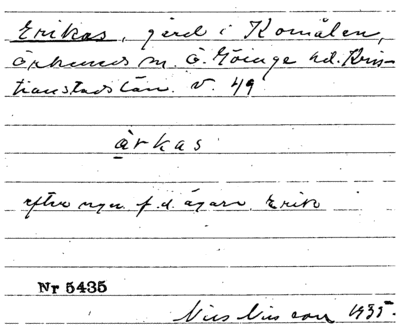 Erikas, gärd i Komålen,
Örkeneds sn. Ö. Göinge hd. Kris-
tianstads län. v. 49
àrkas
efter f.d. ägare Erik
Nr 5435
Nils Nilsson 1935.